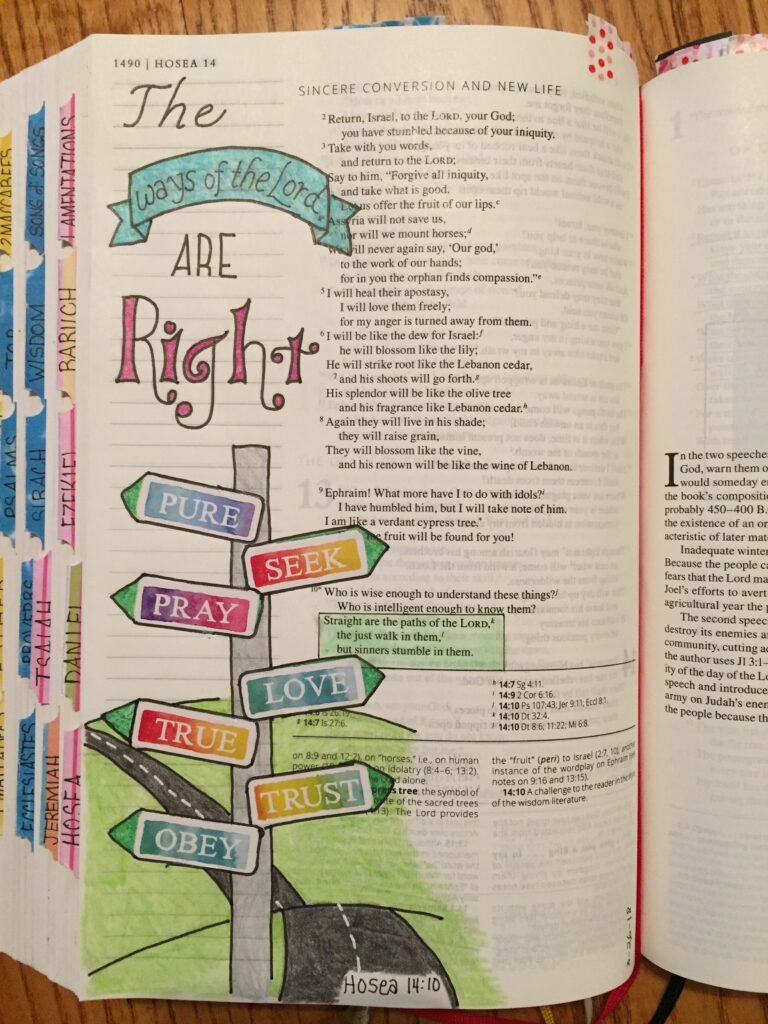 1490 | HOSEA 14
The
Ways of the Lord
ARE
Right
PURE
SEEK
PRAY
LOVE
TRUE
TRUST
OBEY
Hosea 14:10
SINCERE CONVERSION AND NEW LIFE
2 Return, Israel, to the LORD, your God;
you have stumbled because of your iniquity.
3 Take with you words,
and return to the LORD;
Say to him, “Forgive all iniquity,
and take what is good.
Let us offer the fruit of our lips.c
Assyria will not save us,
nor will we mount horses;d
We will never again say, ‘Our god,’
to the work of our hands;
for in you the orphan finds compassion.”e
5 I will heal their apostasy,
I will love them freely;
for my anger is turned away from them.
6 I will be like the dew for Israel:f
he will blossom like the lily;
He will strike root like the Lebanon cedar,
7 and his shoots will go forth.g
His splendor will be like the olive tree
and his fragrance like Lebanon cedar.h
8 Again they will live in his shade;
they will raise grain,
They will blossom like the vine,
and his renown will be like the wine of Lebanon.
9 Ephraim! What more have I to do with idols?i
I have humbled him, but I will take note of him.
I am like a verdant cypress tree.*
fruit will be found for you!
10* Who is wise enough to understand these things?j
Who is intelligent enough to know them?
Straight are the paths of the LORD,k
the just walk in them,l
but sinners stumble in them.
h 14:7 Sg 4:11.
14:9 2 Cor 6:16.
14:10 Ps 107:43; Jer 9:11; Eccl 8:1.
14:10 Dt 32:4.
14:10 Dt 8:6; 11:22; Mi 6:8.
g 14:7 Is 27:6.
on 8:9 and 12:2), on “horses,” i.e., on human
power
on idolatry (8:4–6; 13:2).
alone.
tree: the symbol of
of the sacred trees
The Lord provides
the “fruit” (peri) to Israel (2:7, 10), another
instance of the wordplay on Ephraim
notes on 9:16 and 13:15).
14:10 A challenge to the reader in the style
of the wisdom literature.
2 MACCABEES
JOB
PSALMS
SONG of SONGS
WISDOM
SIRACH
PROVERBS
ECCLESIASTES
LAMENTATIONS
BARUCH
EZEKIEL
ISAIAH
DANIEL
JEREMIAH
HOSEA
In the two speeche
God, warn them o
would someday e
the book's compositio
probably 450–400 B.
the existence of an or
acteristic of later mate
Inadequate winter
Because the people ca
fears that the Lord ma
Joel's efforts to avert
agricultural year the p
The second speec
destroy its enemies a
community, cutting ac
the author uses Jl 3:1–
ity of the day of the Lo
speech and introduce
army on Judah's enem
the people because th